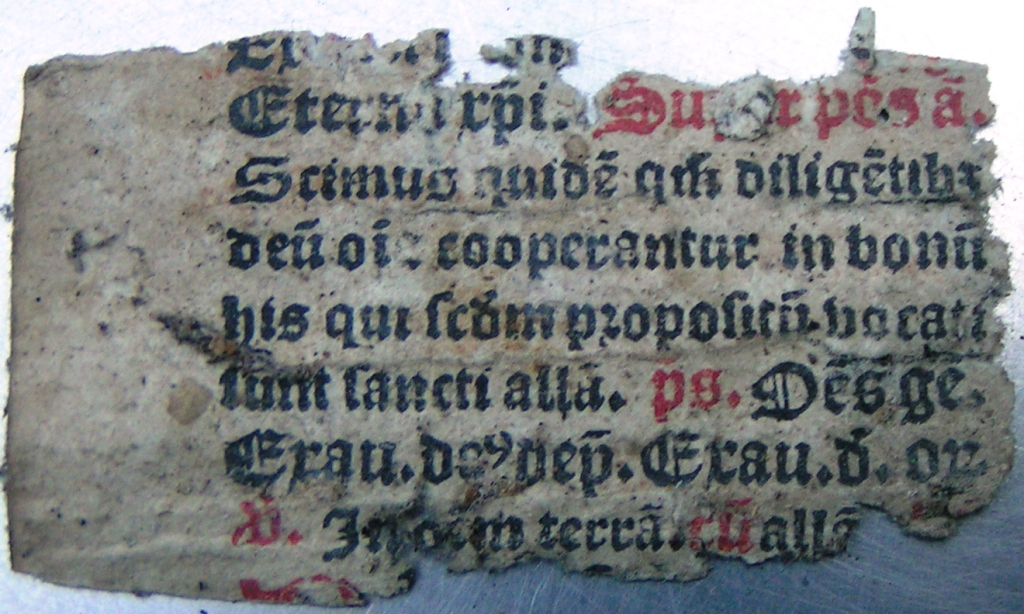 Eterna xp̄i. Super p̄ces ā.
Scimus quidē qm̄ diligētibꝰ
deū oīa cooperantur in bonū
his qui scd̄m propositū vocati
sunt sancti allā. ps. Om̄s gē.
Exau. deꝰ dep̄. Exau. d̄. or.
V̄. In oēm terrā. cū allā